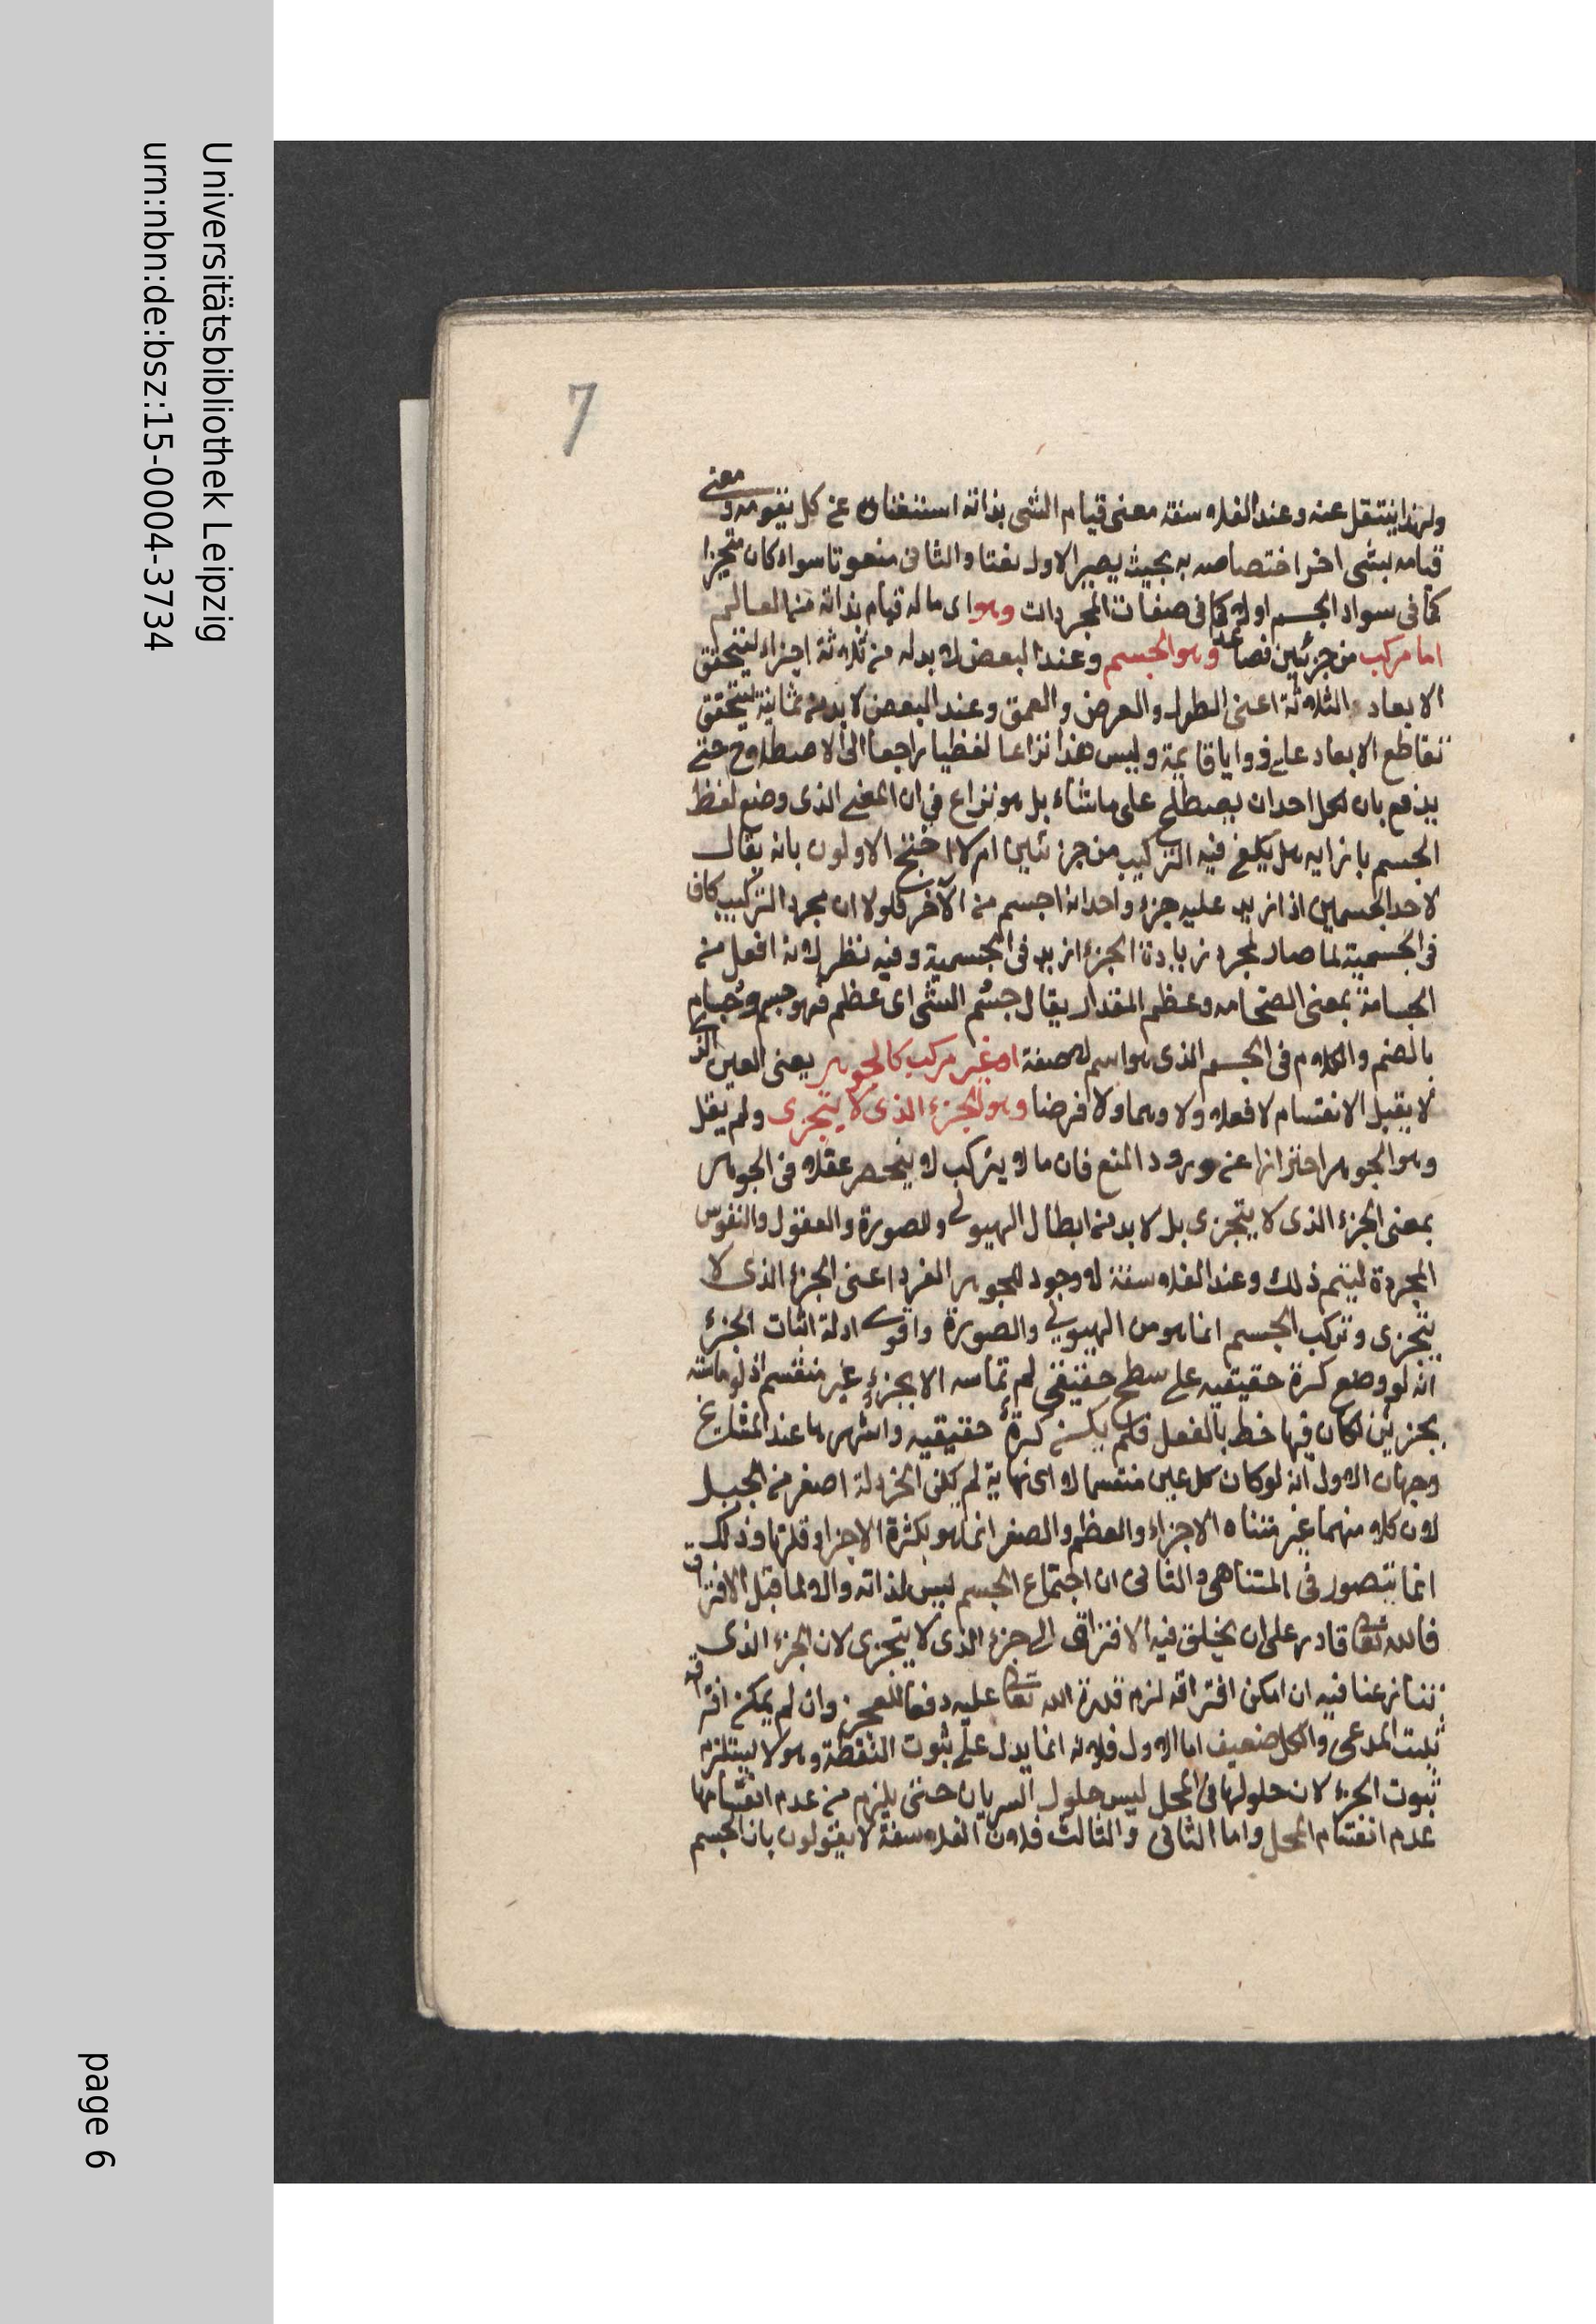 Universitätsbibliothek Leipzig
urn:nbn:de:bsz:15-0004-3734
page 6
7
ولهذا ينتقل عنه وعند الفلاسفة معنى قيام الشى بذاته استغناؤه عن كل يقومه ومعنى
قيامه بشى اخر اختصاصه به بحيث يصير الاول نعتا والثانى منعوتا سواء كان متحيزا
كما فى سواد الجسم او لا كما فى صفات المجردات وهو اى ما له قيام بذاته من العالم
اما مركب من جزئين فصاعدا وهو الجسم وعند البعض لا بد له من ثلاثة اجزاء ليتحقق
الابعاد الثلاثة اعنى الطول والعرض والعمق وعند البعض لا بد من ثمانية ليتحقق
تقاطع الابعاد على زوايا قايمة وليس هذا نزاعا لفظيا راجعا الى الاصطلاح حتى
يدفع بان لكل احد ان يصطلح على ما شاء بل هو نزاع فى ان المعنى الذى وضع لفظ
الجسم بازايه هل يكفى فيه التركيب من جزئين ام لا احتج الاولون بانه يقال
لاحد الجسمين اذا ازيد عليه جزء واحد انه اجسم من الآخر فلولا ان مجرد التركيب كاف
فى الجسمية لما صار لمجرد زيادة الجزء ازيد فى الجسمية وفيه نظر لانه افعل من
الجسامة بمعنى الضخامه وعظم المقدار يقال جسُم الشى اى عظم فهو جسم وجُسام
بالضم والكلام فى الجسم الذى هو اسم لا صفة او غير مركب كالجوهر يعنى العين الذى
لا يقبل الانقسام لا فعلا ولا وهما ولا فرضا وهو الجزء الذى لا يتجزى ولم يقل
وهو الجوهر احترازا عن ورود المنع فان ما لا يتركب لا ينحصر عقلا فى الجوهر
بمعنى الجزء الذى لا يتجزى بل لا بد من ابطال الهيولى والصورة والعقول والنفوس
المجردة ليتم ذلك وعند الفلاسفة لا وجود للجوهر الفرد اعنى الجزء الذى لا
يتجزى وتركب الجسم انما هو من الهيولى والصورة واقوى ادلة اثبات الجزء
انه لو وضع كرة حقيقيه على سطح حقيقى لم تماسه الا بجزء غير منقسم اذ لو ماسته
بجزئين لكان فيها خط بالفعل فلم يكن كرة حقيقيه واشهرها عند المشايخ
وجهان الاول انه لو كان كل عين منقسما لا الى نهاية لم يكن الخردلة اصغر من الجبل
لان كلا منهما غير متناه الاجزاء والعظم والصغر انما هو بكثرة الاجزاء وقلتها وذلك
انما يتصور فى المتناهى والثانى ان اجتماع الجسم ليس لذاته والا لما قبل الافتراق
فالله تعالى قادر على ان يخلق فيه الافتراق الى جزء الذى لا يتجزى لان الجزء الذى
تنازعنا فيه ان امكن افتراقه لزم قدرة الله تعالى عليه دفعا للعجز وان لم يمكن افتراقه
ثبت المدعى والكل ضعيف اما الاول فلانه انما يدل على ثبوت النقطة وهو لا يستلزم
ثبوت الجزء لان حلولها فى المحل ليس حلول السريان حتى يلزم من عدم انقسامها
عدم انقسام المحل واما الثانى والثالث فلان الفلاسفة لا يقولون بان الجسم